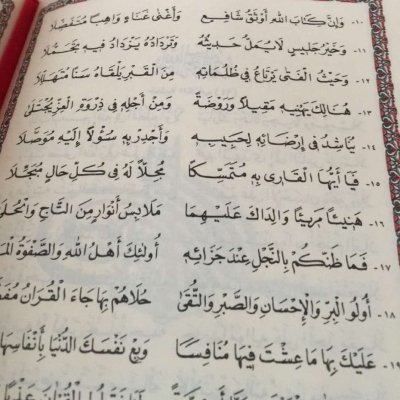 ١٠- وَإِنَّ كِتَابَ اللهِ أَوْثَقُ شَافِعٍ وَأَغْنَى غَنَاءٍ وَاهِبًا مُتَفَضِّلَا
١١- وَخَيْرُ جَلِيسٍ لَا يُمَلُّ حَدِيثُهُ وَتَرْدَادُهُ يَزْدَادُ فِيهِ تَجَمُّلَا
١٢- وَحَيْثُ الْفَتَى يَرْتَاعُ فِي ظُلُمَاتِهِ مِنَ الْقَبْرِ يَلْقَاهُ سَنًا مُتَهَلِّلَا
١٣- هُنَالِكَ يَهْنِيهِ مَقِيلًا وَرَوْضَةً وَمِنْ أَجْلِهِ فِي ذِرْوَةِ الْعِزِّ يُجْتَلَى
١٤- يُنَاشِدُ فِي إِرْضَائِهِ لِحَبِيبِهِ وَأَجْدِرْ بِهِ سُؤْلًا إِلَيْهِ مُوَصَّلَا
١٥- فَيَا أَيُّهَا الْقَارِي بِهِ مُتَمَسِّكًا مُجِلًّا لَهُ فِي كُلِّ حَالٍ مُبَجِّلَا
١٦- هَنِيئًا مَرِيئًا وَالِدَاكَ عَلَيْهِمَا مَلَابِسُ أَنْوَارٍ مِنَ التَّاجِ وَالْحُلَى
١٧- فَمَا ظَنُّكُمْ بِالنَّجْلِ عِنْدَ جَزَائِهِ أُولَئِكَ أَهْلُ اللهِ وَالصَّفْوَةُ
١٨- أُولُو الْبِرِّ وَالْإِحْسَانِ وَالصَّبْرِ وَالتُّقَى حُلَاهُمْ بِهَا جَاءَ الْقُرَانُ
١٩- عَلَيْكَ بِهَا مَا عِشْتَ فِيهَا مُنَافِسًا وَبِعْ نَفْسَكَ الدُّنْيَا بِأَنْفَاسِهَا